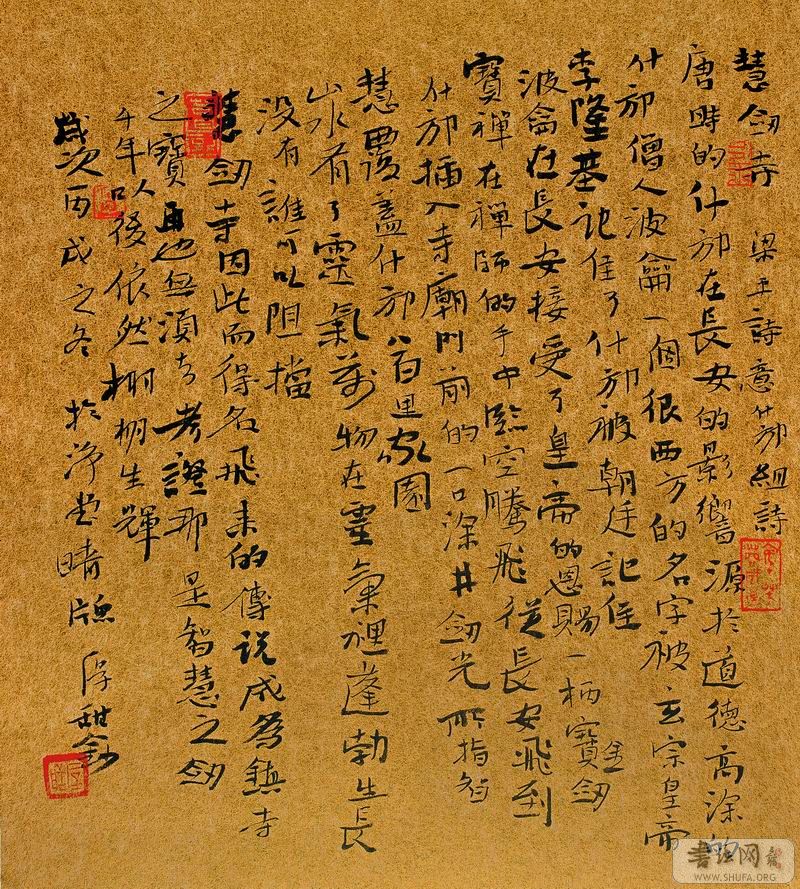 慧劍寺 梁平詩意什邡組詩
唐時的什邡在長安的影響源於道德高深的
什邡僧人波侖一個很西方的名字被玄宗皇帝
李隆基記住了什邡被朝廷記住
波侖在長安接受了皇帝的恩賜一柄寶劍
寶禪在禪師的手中臨空騰飛從長安飛到
什邡插入寺廟門前的一口深井劍光所指智
慧覆蓋什邡八百里家園
山水有了靈氣萬物在靈氣裡蓬勃生長
沒有誰可以阻擋
慧劍寺因此而得名飛來的傳說成為鎮寺
之寶再也無須去考證那是智慧之劍
千年以後依然栩栩生輝
歲次丙戌之冬於淨堂晴牖
书法网
WWW.SHUFA.ORG